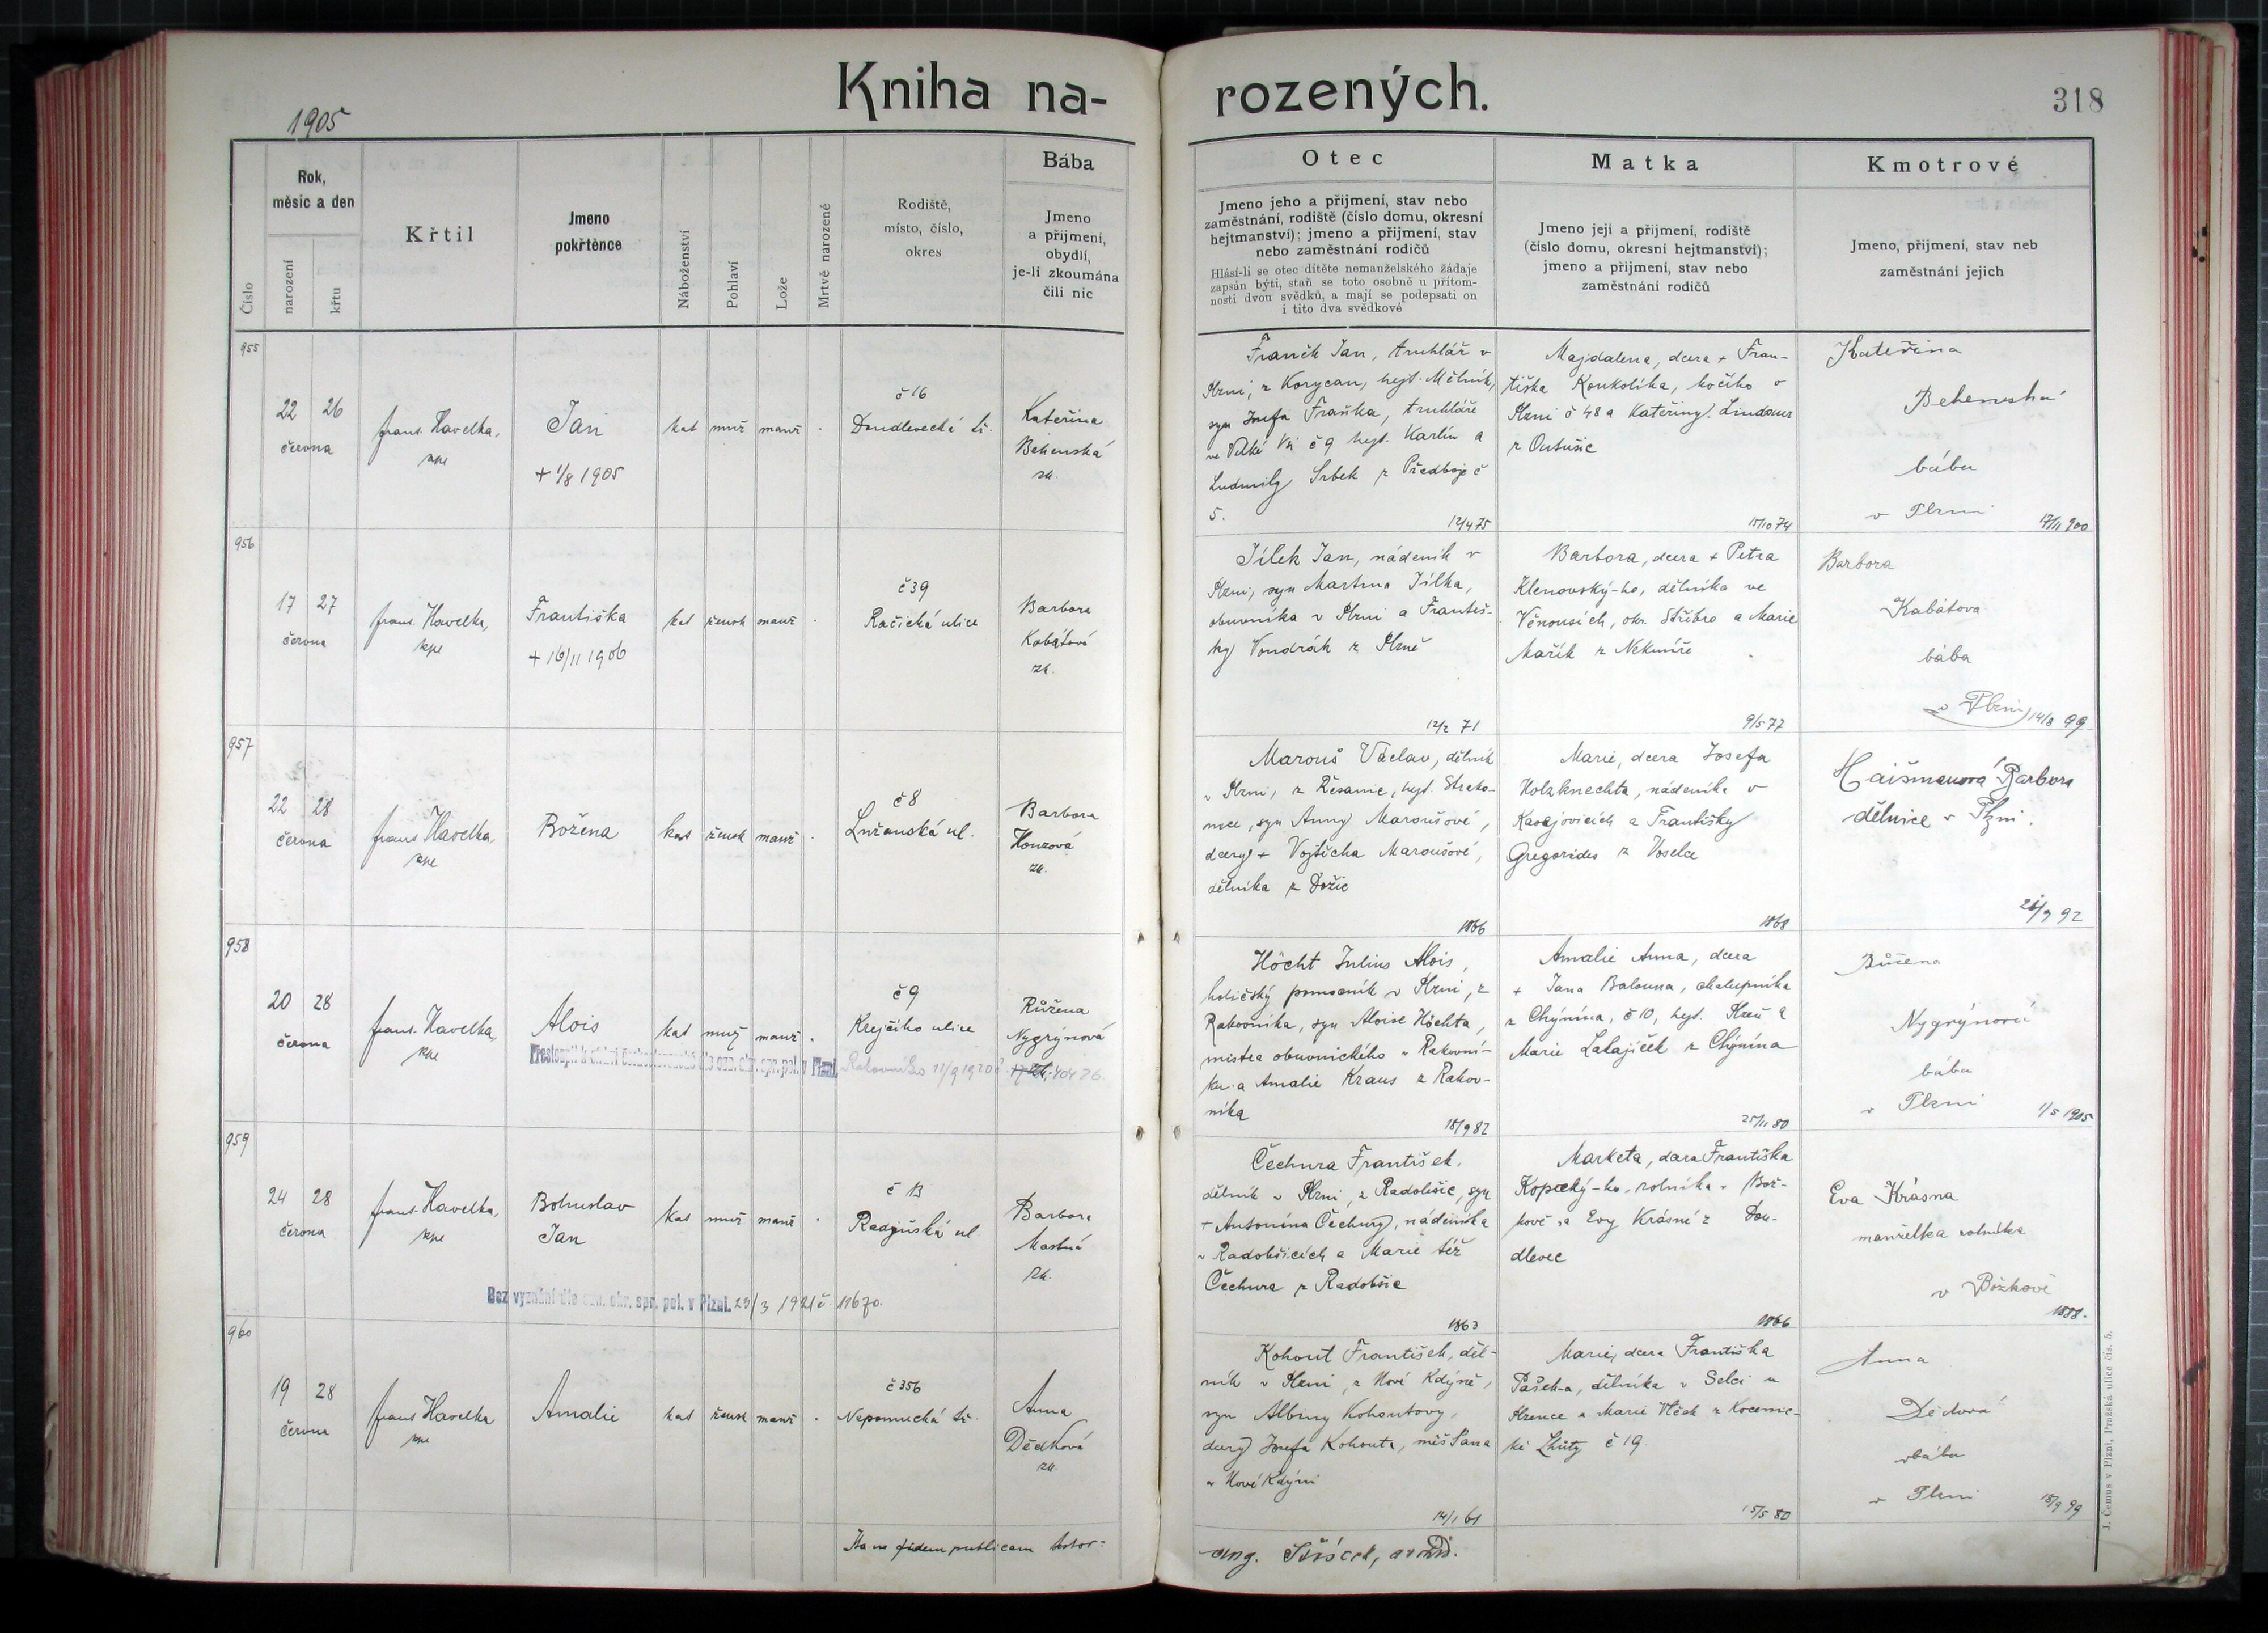 Kniha na-
rozených.
318
1905
Číslo
Rok,
měsíc a den
narození
křtu
Křtil
Jmeno
pokřtěnce
Náboženství
Pohlaví
Lože
Mrtvě narozené
Rodiště,
místo, číslo,
okres
Bába
Jmeno
a přijmení,
obydlí,
je-li zkoumána
čili nic
Otec
Jmeno jeho a přijmení, stav nebo
zaměstnání, rodiště (číslo domu, okresní
hejtmanství); jmeno a přijmení, stav
nebo zaměstnání rodičů
Hlásí-li se otec dítěte nemanželského žádaje
zapsán býti, staň se toto osobně u přítom-
nosti dvou svědků, a mají se podepsati on
i tito dva svědkové
Matka
Jmeno její a přijmení, rodiště
(číslo domu, okresní hejtmanství);
jmeno a přijmení, stav nebo
zaměstnání rodičů
Kmotrové
Jmeno, přijmení, stav neb
zaměstnání jejich
955
22 26
června
frant. Havelka,
kpe
Jan
+ 1/8 1905
kat
muž
manž
č 16
Doudlevecká tř.
Kateřina
Behenská
zk.
Franěk Jan, truhlář v
Plzni, z Korycan, hejt. Mělník,
syn Josefa Fraňka, truhláře
ve Velké Vsi č 9 hejt. Karlín a
Ludmily Srbek z Předboje č
5.
12/4 75
Majdalena, dcera + Fran-
tiška Koukolíka, kočího v
Plzni č 48 a Kateřiny Lindaur
z Outušic
15/10 74
Kateřina
Behenská
bába
v Plzni
17/11 900
956
17 27
června
frant. Havelka,
kpe
Františka
+ 16/11 1906
kat
žensk
manž
č 39
Račická ulice
Barbora
Kabátová
zk.
Jílek Jan, nádeník v
Plzni, syn Martina Jílka,
obuvníka v Plzni a Františ-
ky Vondrák z Plzně
12/2 71
Barbora, dcera + Petra
Klenovský-ho, dělníka ve
Věnousích, okr. Stříbro a Marie
Mařík z Nekmíře
9/5 77
Barbora
Kabátova
bába
v Plzni
14/8 99
957
22 28
června
frant. Havelka,
kpe
Božena
kat
žensk
manž
č 8
Lužanská ul.
Barbora
Honzová
zk.
Marouš Václav, dělník
v Plzni, z Řesanic, hejt. Strako-
nice, syn Anny Maroušové,
dcery + Vojtěcha Maroušové,
dělníka z Dožic
1866
Marie, dcera Josefa
Holzknechta, nádeníka v
Kasejovicích a Františky
Gregorides z Voselce
1868
Haišmanová Barbora
dělnice v Plzni.
958
20 28
června
frant. Havelka,
kpe
Alois
kat
muž
manž
č 9
Krejčího ulice
Růžena
Nygrýnová
Přestoupil k církvi československé dle ozn. okr. spr. pol. v Plzni.
Höcht Julius Alois,
holičský pomocník v Plzni, z
Rakovníka, syn Aloise Höchta,
mistra obuvnického v Rakovní-
ku a Amalie Kraus z Rakov-
níka
18/9 82
Amalie Anna, dcera
+ Jana Balouna, chalupníka
z Chýnína, č 10, hejt. Plzeň a
Marie Lalajíček z Chýnína
25/11 80
Růžena
Nygrýnová
bába
v Plzni
1/5 1905
959
24 28
června
frant. Havelka,
kpe
Bohuslav
Jan
kat
muž
manž
č 13
Radyňská ul
Barbora
Mastná
zk.
Bez vyznání dle ozn. okr. spr. pol. v Plzni. 23/3 1921 č. 11670.
Čechura František,
dělník v Plzni, z Radobšic, syn
+ Antonína Čechury, nádeníka
v Radobšicích a Marie též
Čechura z Radobšic
1863
Marketa, dcera Františka
Kopecký-ho, rolníka v Bož-
kově a Evy Krásné z Dou-
dlevec
1866
Eva Krásna
manželka rolníka
v Božkově
1888.
960
19 28
června
frant Havelka
kpe
Amalie
kat
žensk
manž
č 356
Nepomucká tř.
Anna
Dědková
zk.
Kohout František, děl-
ník v Plzni, z Nové Kdýně,
syn Albiny Kohoutovy,
dcery Josefa Kohouta, měšťana
v Nové Kdýni
14/1 61
Marie, dcera Františka
Pašek-a, dělníka v Selci u
Plzence a Marie Vlček z Kocenic-
ké Lhůty č 19.
15/5 80
Anna
Dědová
bába
v Plzni
18/9 99
Ita ad fidem publicam testor:
J. Čemus v Plzni, Pražská ulice čís. 5.